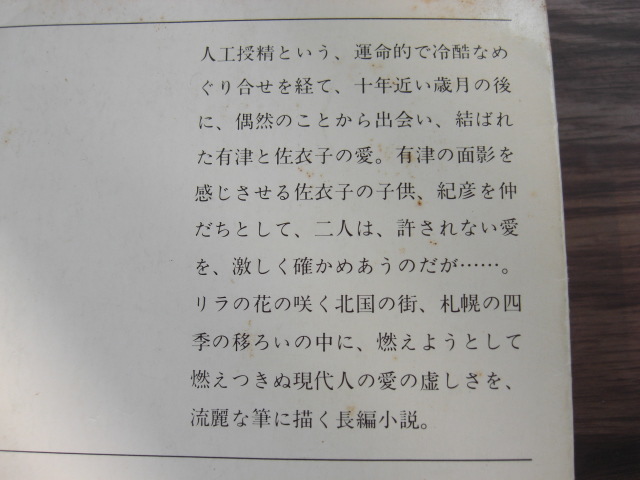 人工授精という、運命的で冷酷なめ
ぐり合せを経て、十年近い歳月の後
に、偶然のことから出会い、結ばれ
た有津と佐衣子の愛。有津の面影を
感じさせる佐衣子の子供、紀彦を仲
だちとして、二人は、許されない愛
を、激しく確かめあうのだが……。
リラの花の咲く北国の街、札幌の四
季の移ろいの中に、燃えようとして
燃えつきぬ現代人の愛の虚しさを、
流麗な筆に描く長編小説。